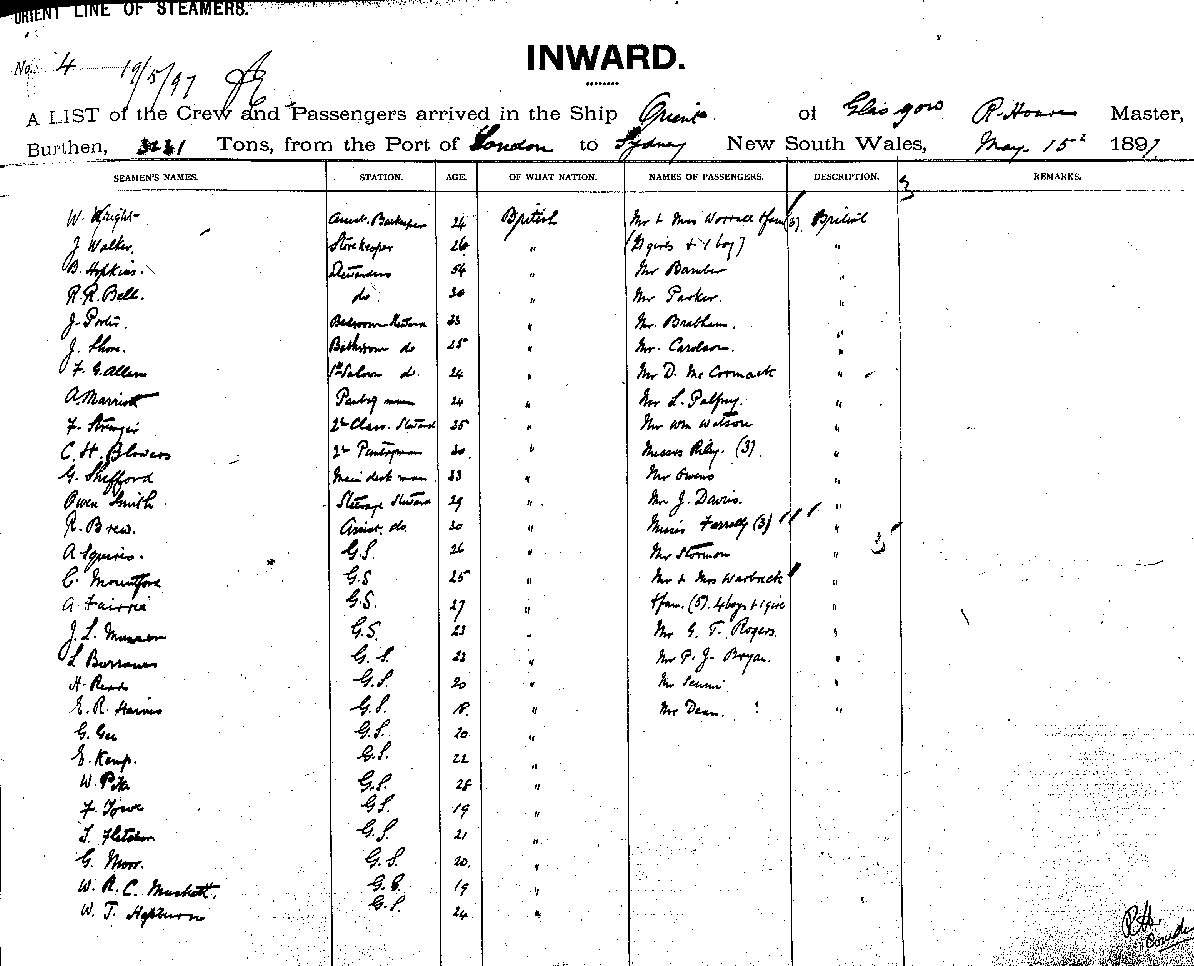 ORIENT LINE OF STEAMERS.
INWARD.
No. 4 19/5/97
A LIST of the Crew and Passengers arrived in the Ship Orient of Glasgow Master,
Burthen, Tons, from the Port of London to Sydney New South Wales, May 15 1897
SEAMEN'S NAMES. STATION. AGE. OF WHAT NATION. NAMES OF PASSENGERS. DESCRIPTION. REMARKS.
W. Wright 24 British Mr & Mrs Worrall & fam (3) British
J. Walker. Storekeeper 26 " (2 girls + 1 boy) "
B. Hopkins. Stewardess 54 " Mr Bamber "
R. R. Bell. do 30 " Mr Parker. "
J. Porter. Bedroom Steward 33 " Mr. Brabham. "
J. Shore. Bathroom do 25 " Mr. "
F. G. Allen 1st Saloon do. 24 " Mr D. McCormack "
A. Marriott Pantry man 24 " Mr L. Palfrey. "
F. Stringer 2nd Class. Steward 25 " Mr Wm Watson "
C. H. Blowers 2nd Pantryman 30 " Messrs Riley. (3) "
G. Shefford Main deck man 33 " Mr Owens "
Owen Smith Steerage Steward 29 " Mr J. Davis. "
R. Brew. Assist. do. 30 " Misses Farrelly (3) "
A Squires. G.S. 26 " Mr "
C. Mountford G.S 25 " Mr & Mrs Warback "
A Fairrie G.S. 27 " & fam. (5). 4 boys + 1 girl
J. L. G.S. 23 " Mr G. T. Rogers. "
L Burrows G.S. 23 " Mr P. J. Bryan. "
H. Read G.S. 20 " Mr "
E. R. Haines G.S. 18. " Mr Dean. "
G. Gee G.S. 20 "
E. Kemp. G.S. 22 "
W. G.S. 28 "
F. Towe G.S. 19 "
T. Fletcher G.S. 21 "
G. G.S. 20. "
W. R. C. Muskett. G.S. 19 "
W. T. Hepburn G.S. 24 "